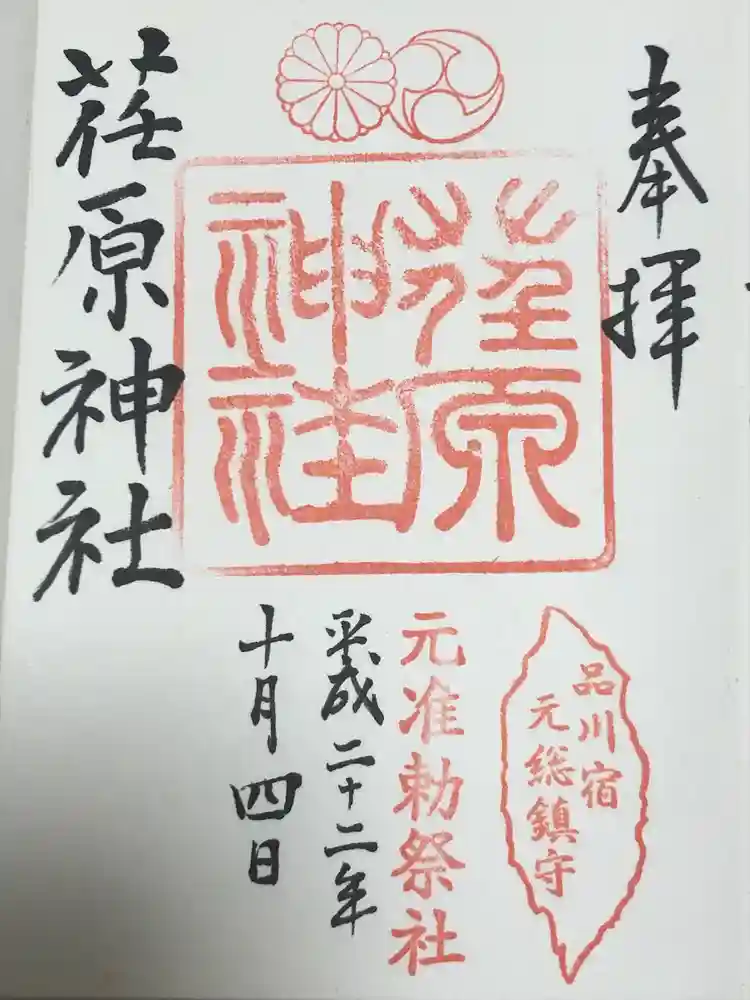 奉拝
荏原神社
品川宿
元総鎮守
元准勅祭社
平成二十二年
十月四日
荏原神社